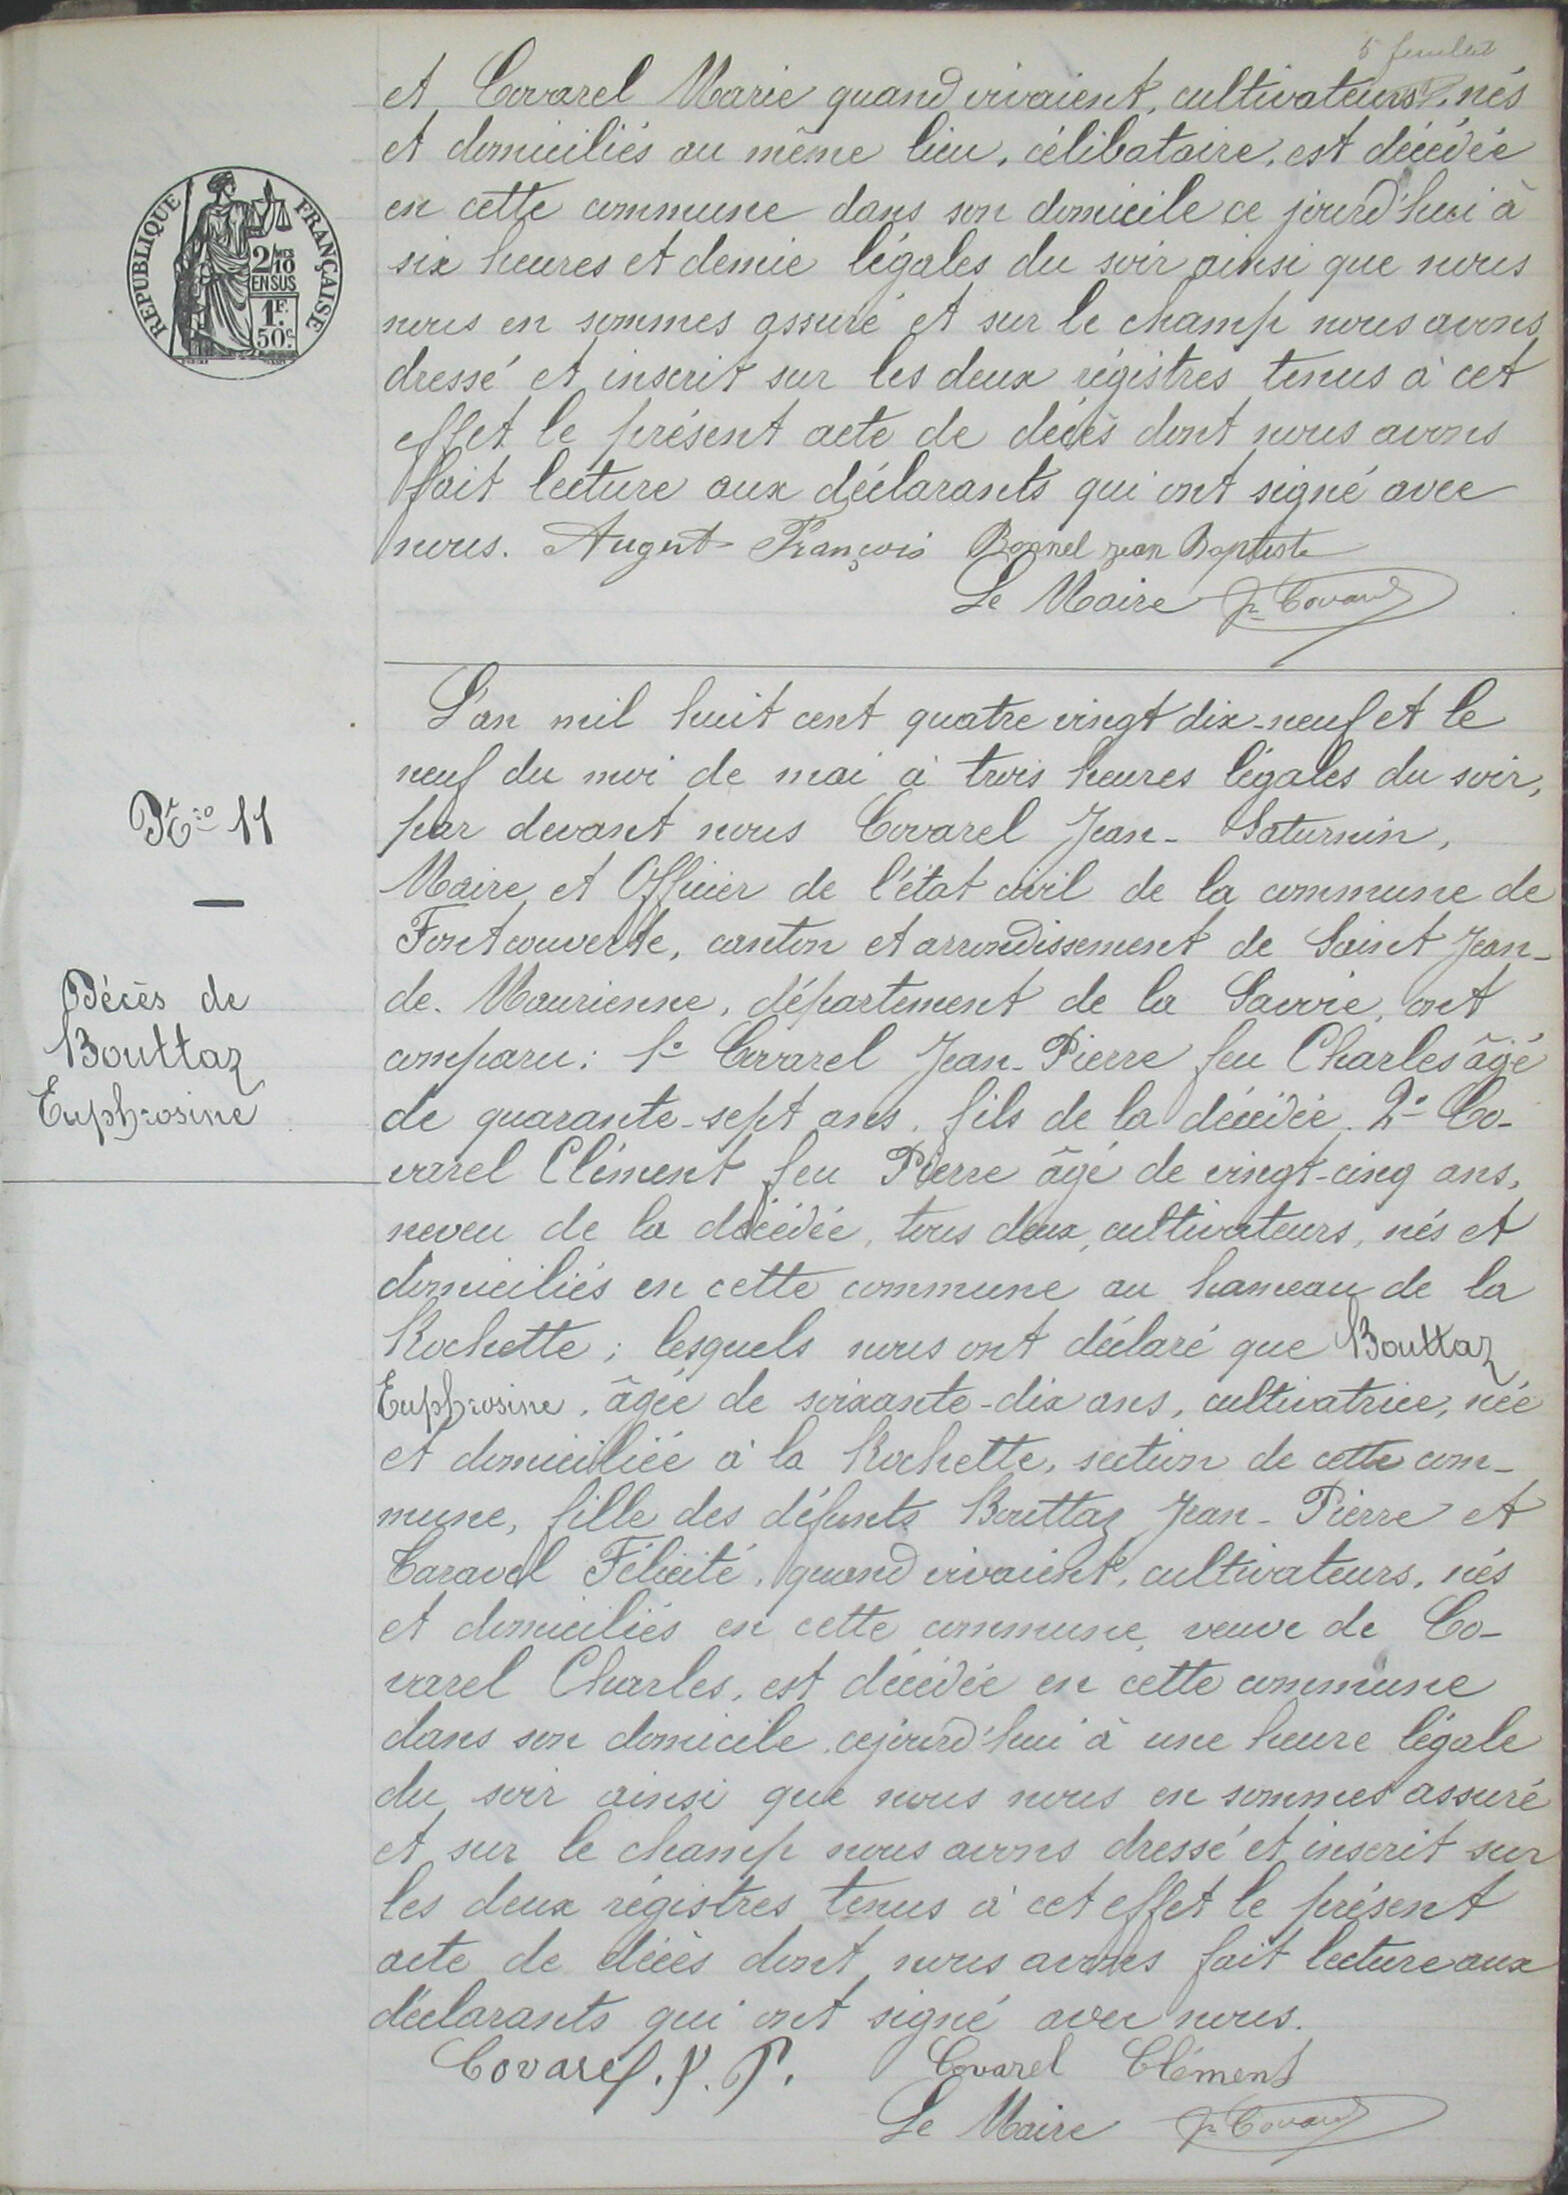 5 feuillet
et Covarel Marie quand vivaient, cultivateurs, nés
et domiciliés au même lieu, célibataire, est décédée
en cette commune dans son domicile ce jourd'hui à
six heures et demie légales du soir ainsi que nous
nous en sommes assuré et sur le champ nous avons
dressé et inscrit sur les deux régistres tenus à cet
effet le présent acte de décès dont nous avons
fait lecture aux déclarants qui ont signé avec
nous. August François Bonnel jean Baptiste
Le Maire Jn Covarel
REPUBLIQUE FRANÇAISE
2/10 MES
EN SUS
1F.
50c.
N.ro 11
Décès de
Bouttaz
Euphrosine
L'an mil huit cent quatre vingt dix-neuf et le
neuf du moi de mai à trois heures légales du soir,
par devant nous Covarel Jean-Saturnin,
Maire et Officier de l'état civil de la commune de
Fontcouverte, canton et arrondissement de Saint Jean-
de-Maurienne, département de la Savoie, ont
comparu: 1° Covarel Jean-Pierre feu Charles âgé
de quarante-sept ans, fils de la décédée. 2° Co-
varel Clément feu Pierre âgé de vingt-cinq ans,
neveu de la décédée, tous deux, cultivateurs, nés et
domiciliés en cette commune au hameau de la
Rochette; lesquels nous ont déclaré que Bouttaz
Euphrosine, âgée de soixante-dix ans, cultivatrice, née
et domiciliée à la Rochette, section de cette com-
mune, fille des défunts Bouttaz Jean-Pierre et
Caravel Félicité, quand vivaient, cultivateurs, nés
et domiciliés en cette commune, veuve de Co-
varel Charles, est décédée en cette commune
dans son domicile, cejourd'hui à une heure légale
du soir ainsi que nous nous en sommes assuré
et sur le champ nous avons dressé et inscrit sur
les deux régistres tenus à cet effet le présent
acte de décès dont nous avons fait lecture aux
déclarants qui ont signé avec nous.
Covarel. J. P. Covarel Clément
Le Maire Jn Covarel